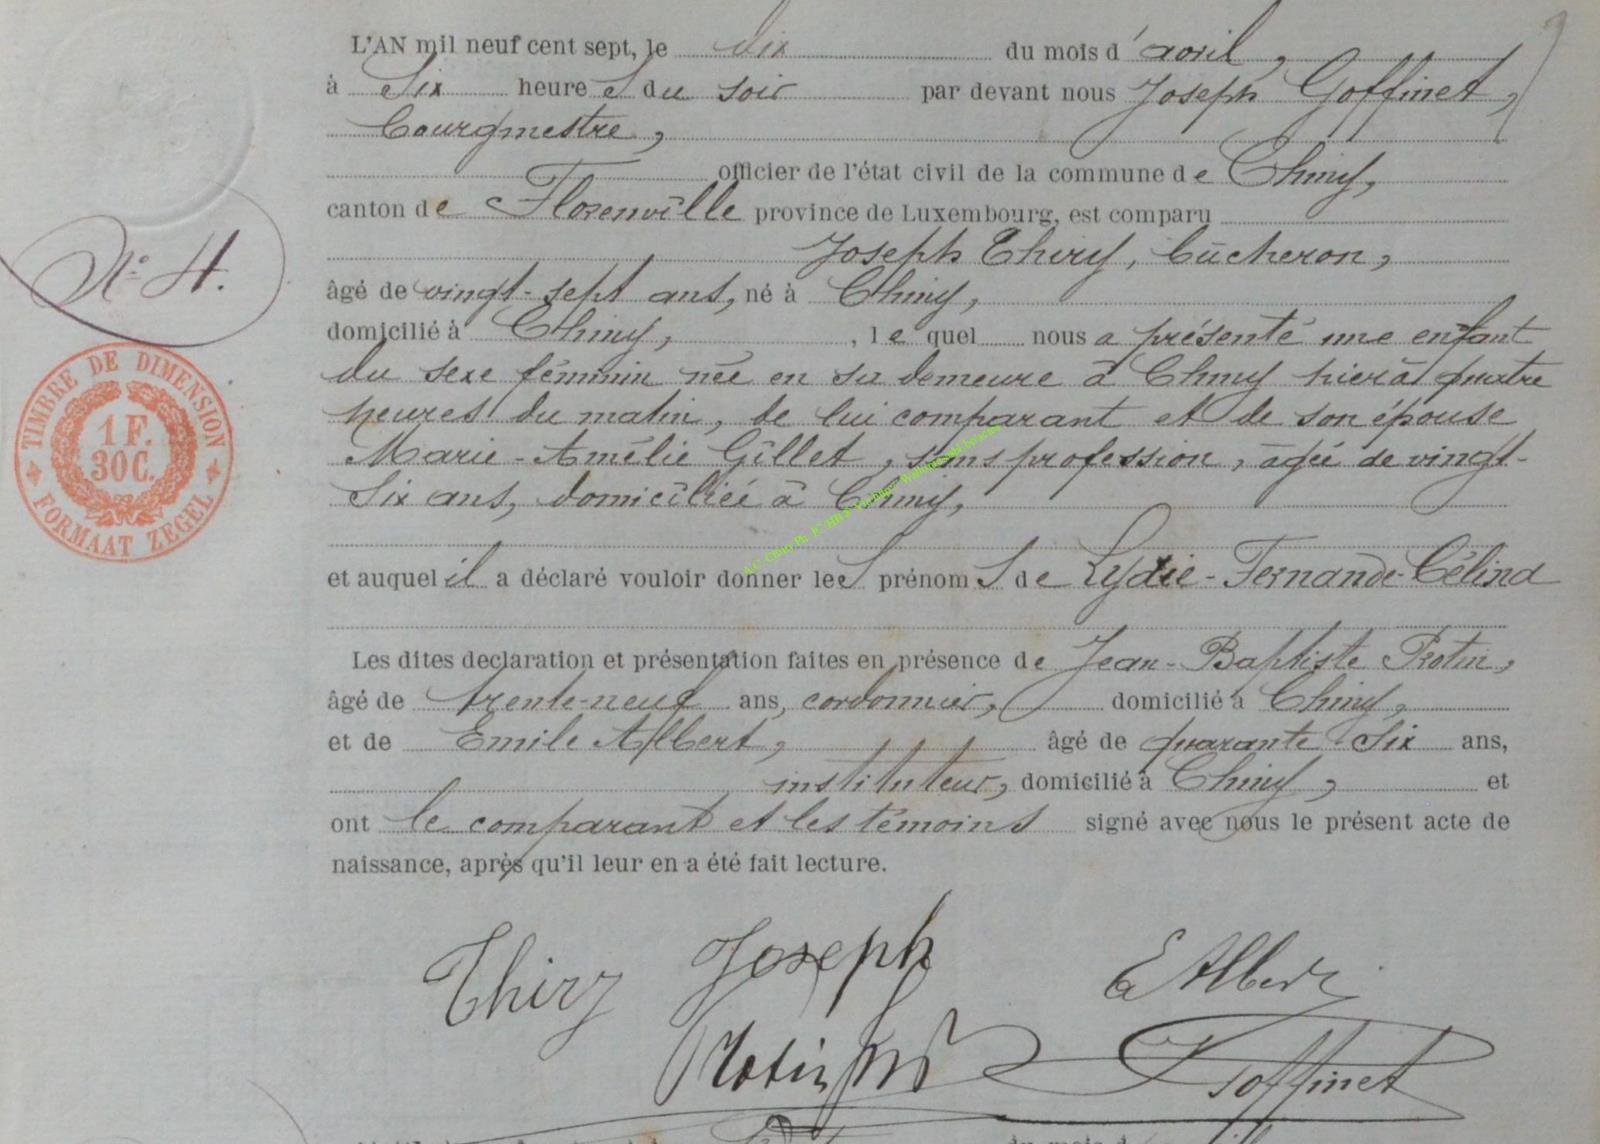 L'AN mil neuf cent sept, le dix du mois d'avril,
à six heures du soir par devant nous Joseph Goffinet,
bourgmestre,
officier de l'état civil de la commune de Chiny,
canton de Florenville province de Luxembourg, est comparu
Joseph Thiry, bûcheron,
N° 4.
âgé de vingt-sept ans, né à Chiny,
domicilié à Chiny, , lequel nous a présenté une enfant
du sexe féminin née en sa demeure à Chiny hier à quatre
heures du matin, de lui comparant et de son épouse
Marie-Amélie Gillet, sans profession, âgée de vingt-
six ans, domiciliée à Chiny,
TIMBRE DE DIMENSION
1 F.
30 C.
FORMAAT ZEGEL
et auquel il a déclaré vouloir donner les prénoms de Lydie-Fernande-Célina
Les dites declaration et présentation faites en présence de Jean-Baptiste Rotin,
âgé de trente-neuf ans, cordonnier, domicilié à Chiny,
et de Emile Albert, âgé de quarante-six ans,
instituteur, domicilié à Chiny, et
ont le comparant et les témoins signé avec nous le présent acte de
naissance, après qu'il leur en a été fait lecture.
Thiry Joseph E Albert
Rotin J Goffinet